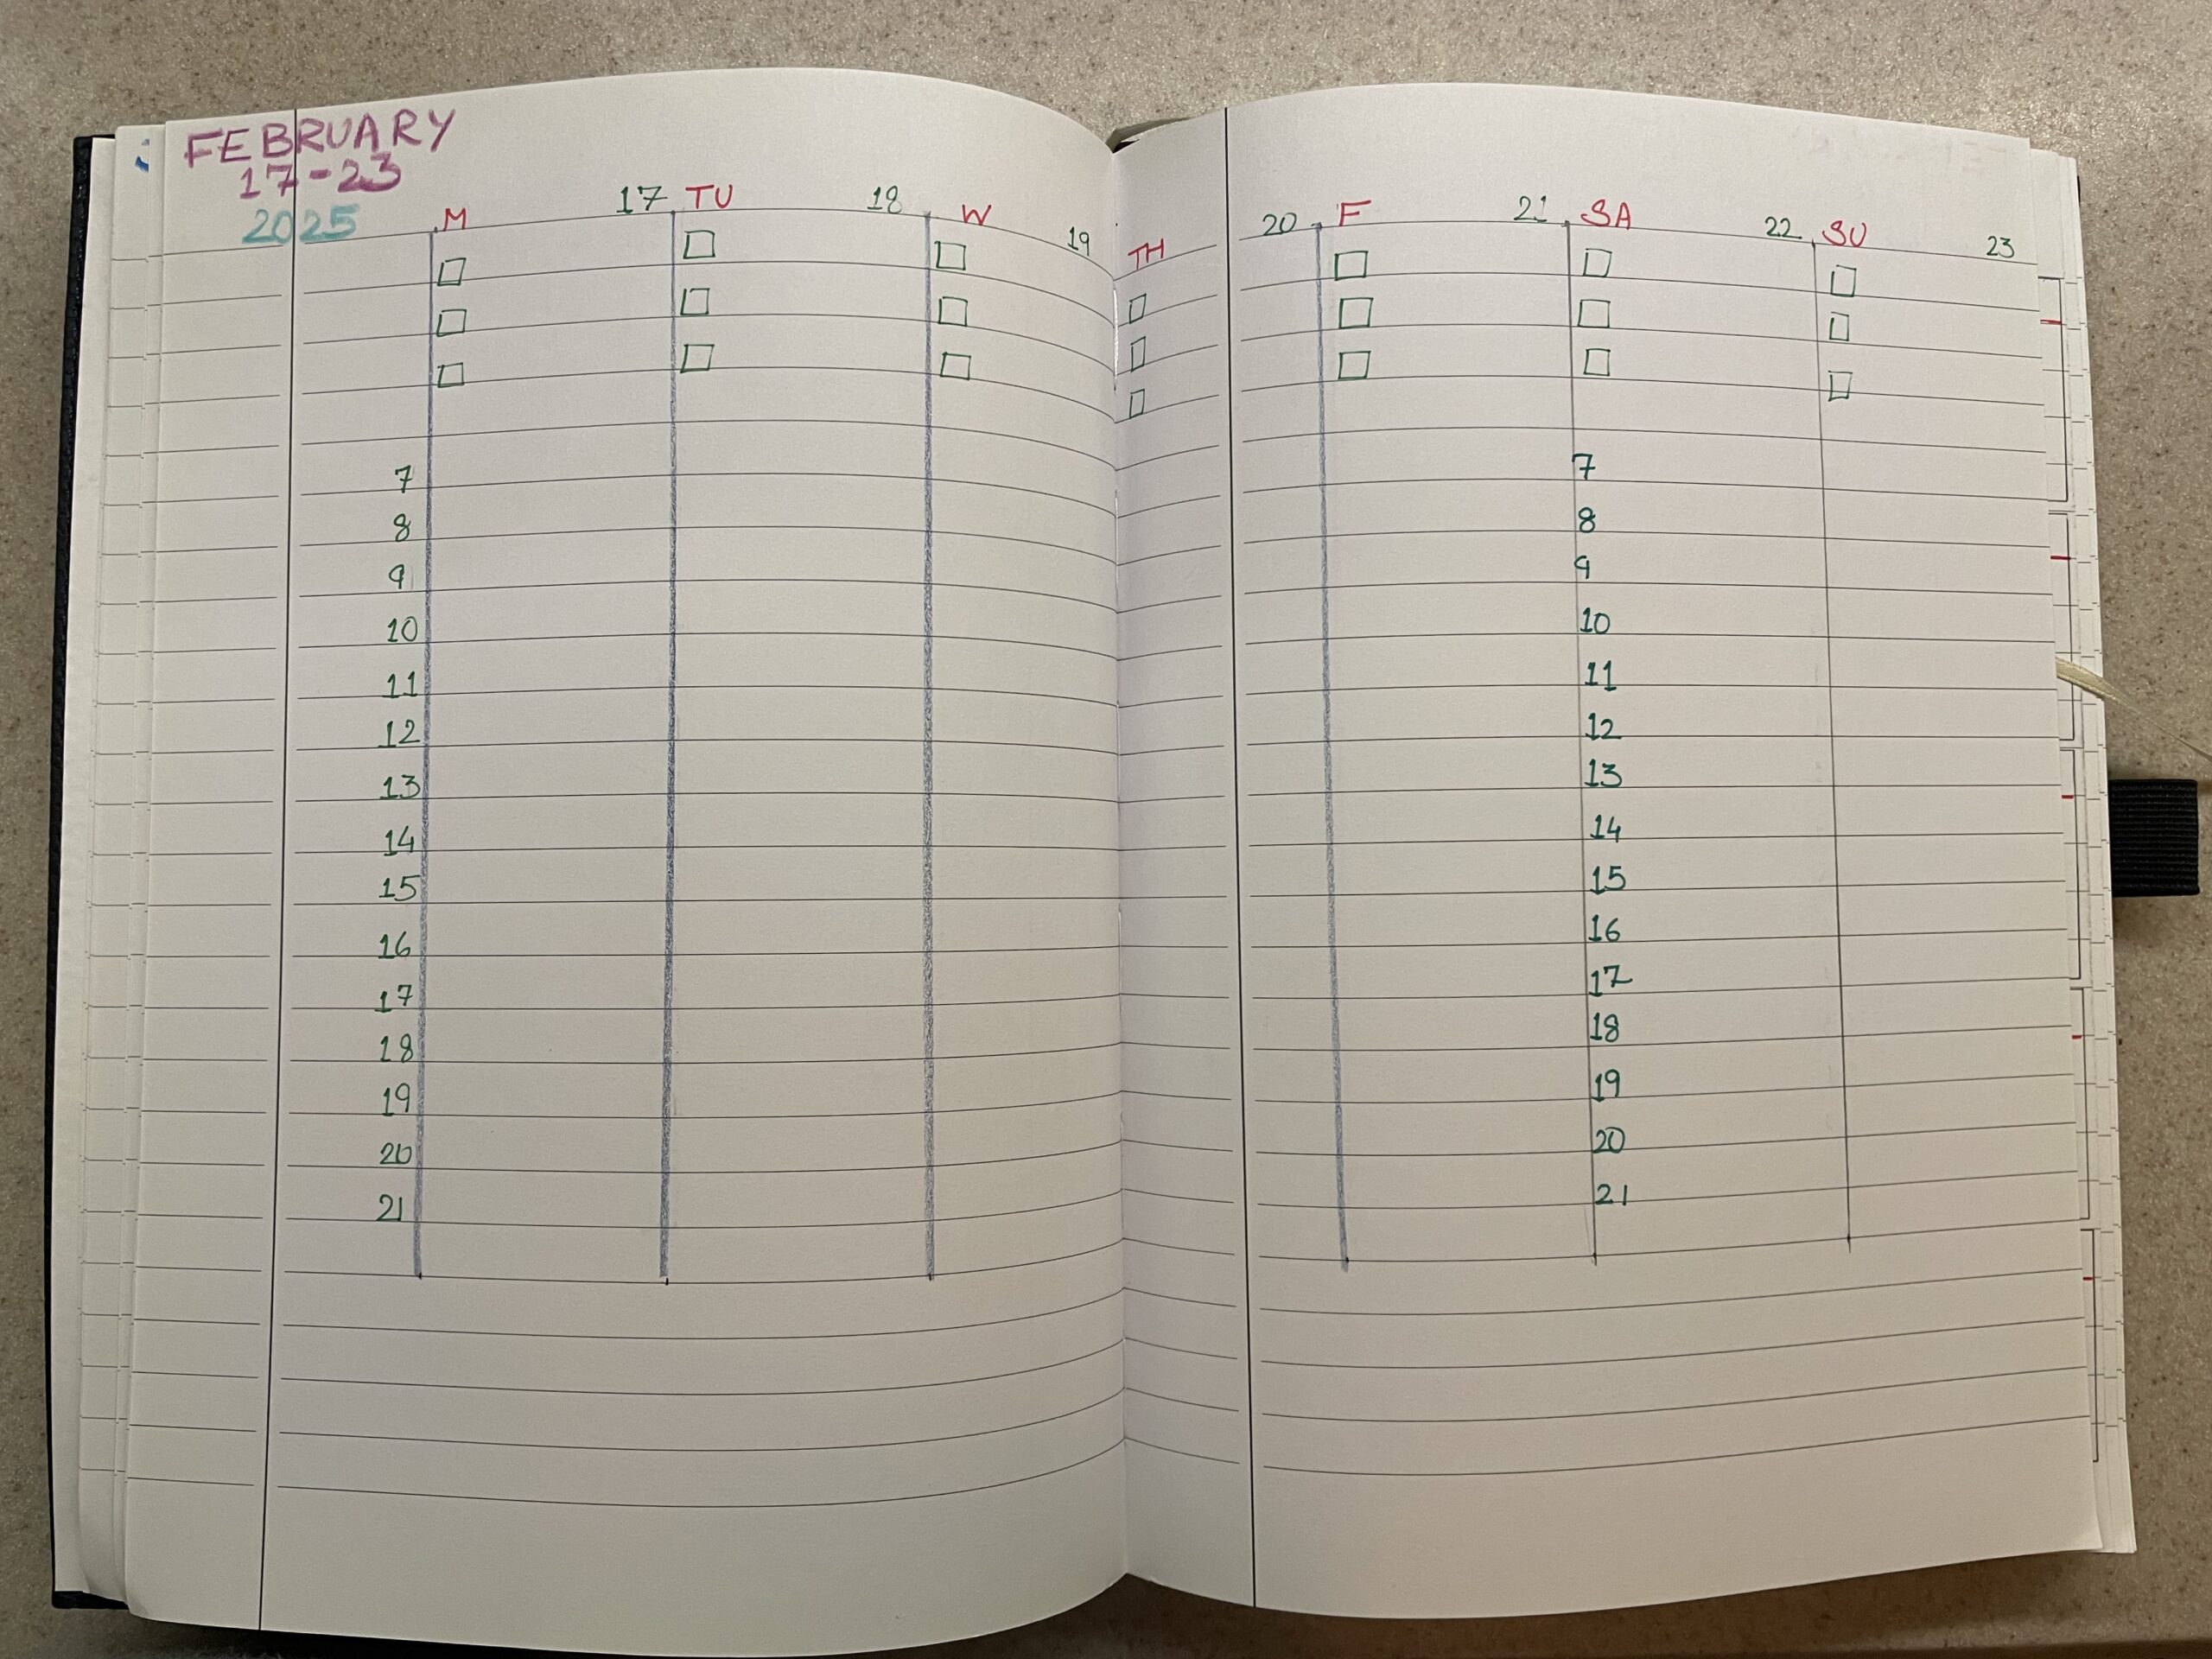 FEBRUARY
17-23
2025
M 17 TU 18 W 19 TH 20 F 21 SA 22 SU 23
7 7
8 8
9 9
10 10
11 11
12 12
13 13
14 14
15 15
16 16
17 17
18 18
19 19
20 20
21 21